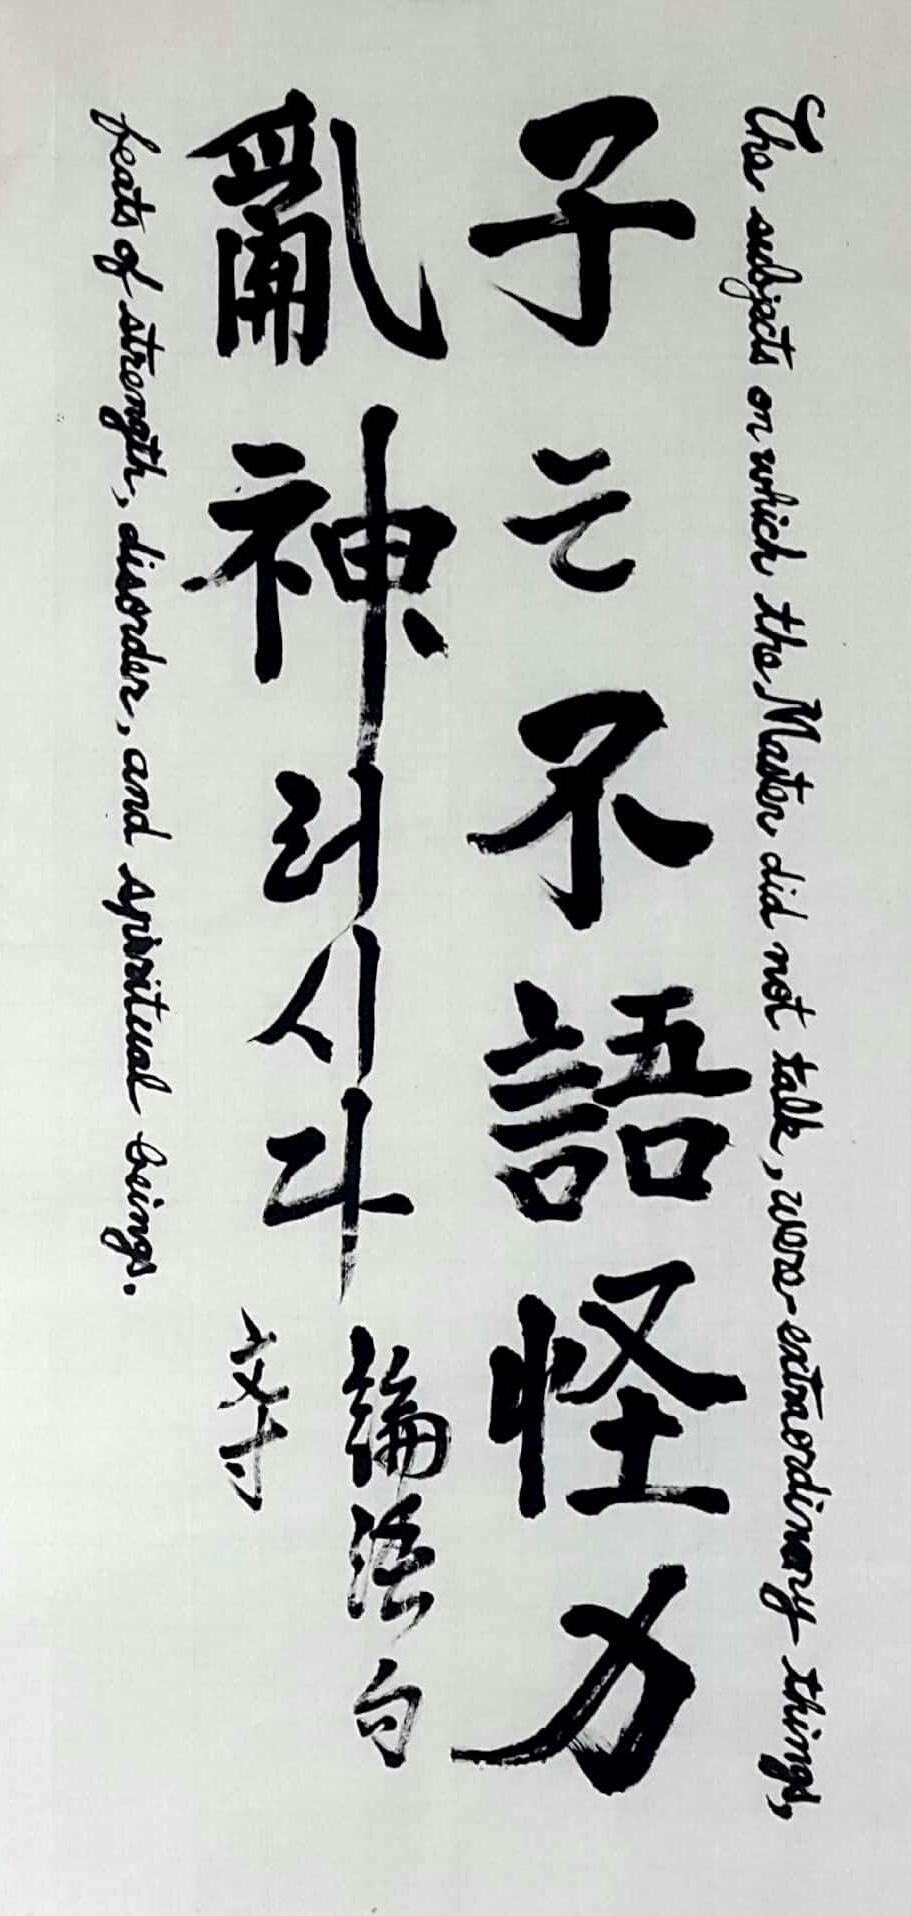 The subjects on which the Master did not talk, were-extraordinary things,
子는不語怪力
亂神러시다
論語句
feats of strength, disorder, and spiritual beings.